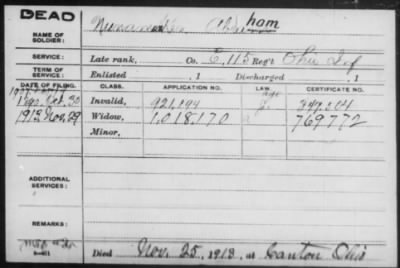 DEAD
NAME OF SOLDIER: Nunamaker, Abraham
SERVICE: Late rank, Co. E, 115 Reg't Ohio Inf
TERM OF SERVICE: Enlisted , 1 Discharged , 1
DATE OF FILING. CLASS. APPLICATION NO. LAW. CERTIFICATE NO.
1890 Oct. 30 Invalid, 921,194
1913 Nov. 29 Widow, 1,018,170 769772
Minor,
ADDITIONAL SERVICES:
REMARKS:
Died Nov. 25, 1913, at Canton Ohio